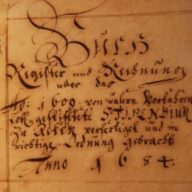 Buch
Register und Rechnung
über das
Ao. 1609. von unsern Vorfahren
gestifftete STIPENDIUM
verfertiget und in
richtige Ordnung gebracht
Anno 1684.